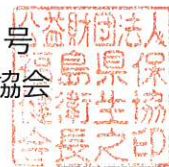 号
協会
公益財団法人
福島県保
健衛生協
会長之印